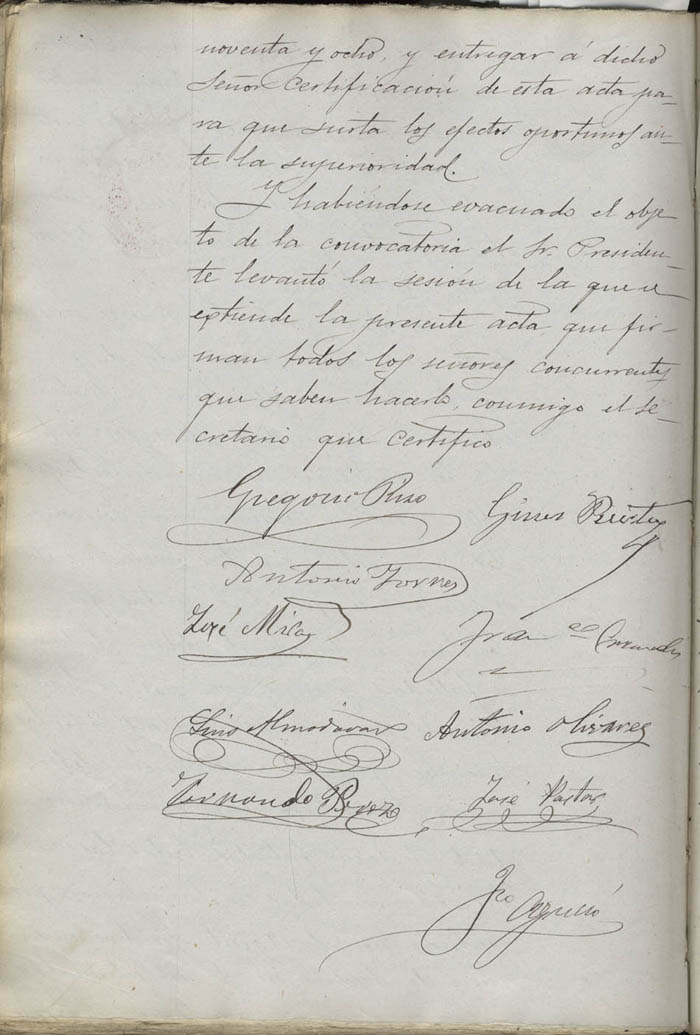 noventa y ocho, y entregar á dicho
Señor certificación de esta acta pa-
ra que surta los efectos oportunos an-
te la superioridad.
Y habiéndose evacuado el obje-
to de la convocatoria el Sr. Presiden-
te levantó la sesión de la que se
extiende la presente acta que fir-
man todos los señores concurrentes
que saben hacerlo, conmigo el se-
cretario que certifico
Gregorio Gines
Antonio Torres
José Fran co
Almodovar Antonio Olivares
Fernando Perez José Pastor
Fco